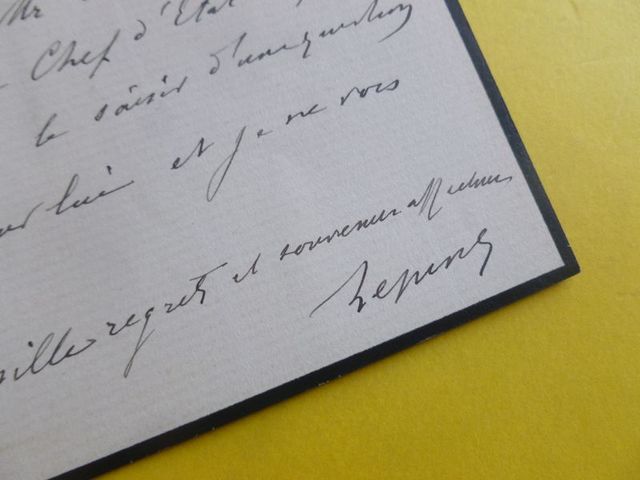 Mr
Chef d'Etat
le saisir d'une question
lui et je ne vois
mille regrets et souvenirs affectueux
Lepine